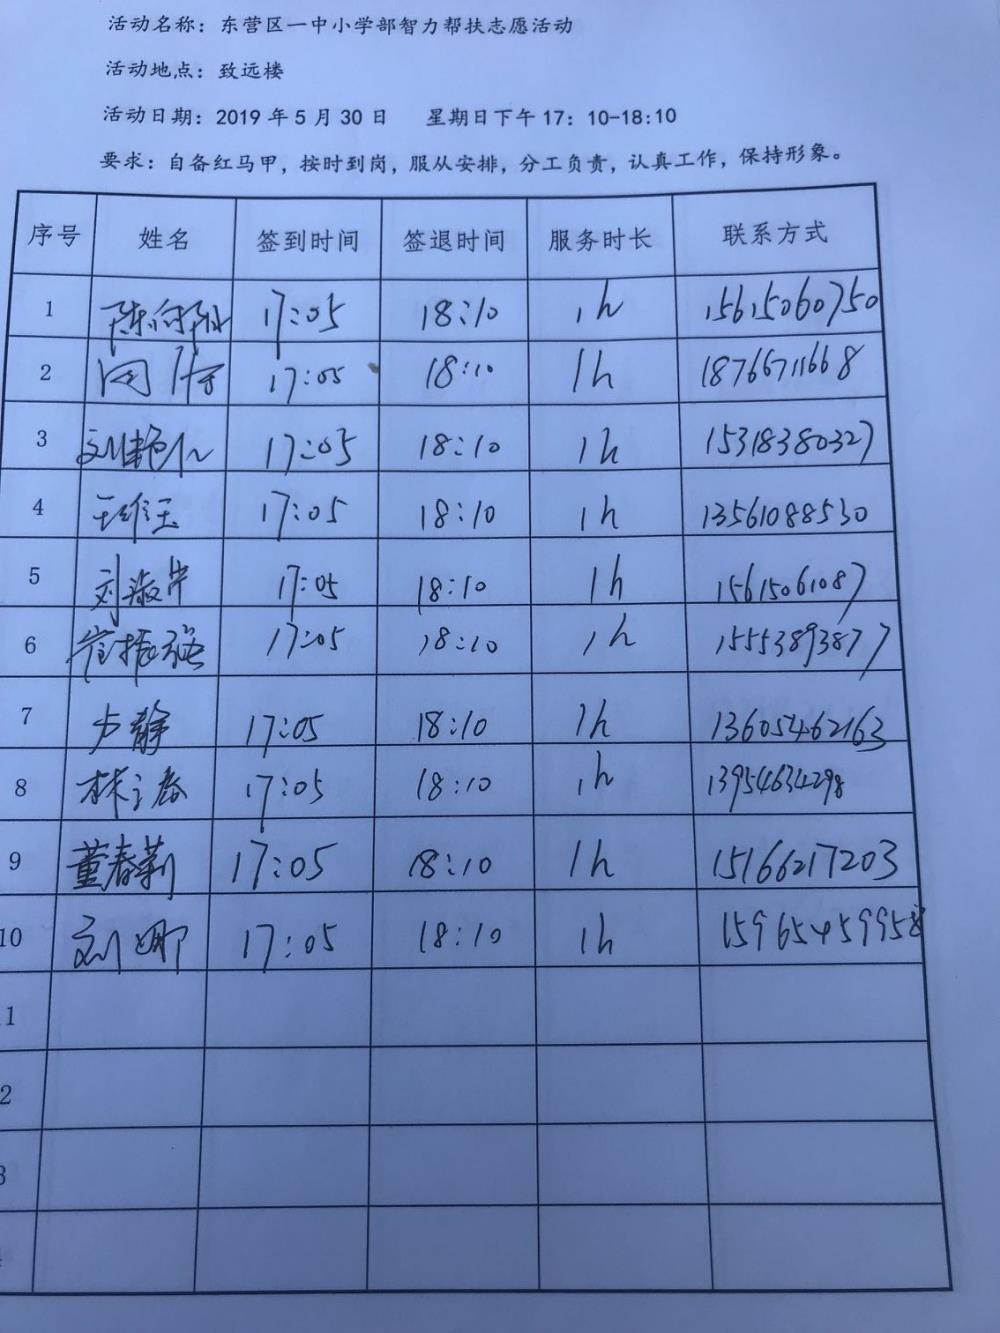 活动名称：东营区一中小学部智力帮扶志愿活动
活动地点：致远楼
活动日期：2019年5月30日 星期日下午17：10-18:10
要求：自备红马甲，按时到岗，服从安排，分工负责，认真工作，保持形象。
序号 姓名 签到时间 签退时间 服务时长 联系方式
1 17:05 18:10 1h 15615060750
2 17:05 18:10 1h 18766711668
3 17:05 18:10 1h 15318380327
4 17:05 18:10 1h 13561088530
5 刘淑芹 17:05 18:10 1h 15615061087
6 崔振强 17:05 18:10 1h 15553893877
7 卢静 17:05 18:10 1h 13605462163
8 林之春 17:05 18:10 1h 13954634298
9 董春莉 17:05 18:10 1h 15166217203
10 刘娜 17:05 18:10 1h 15965459958